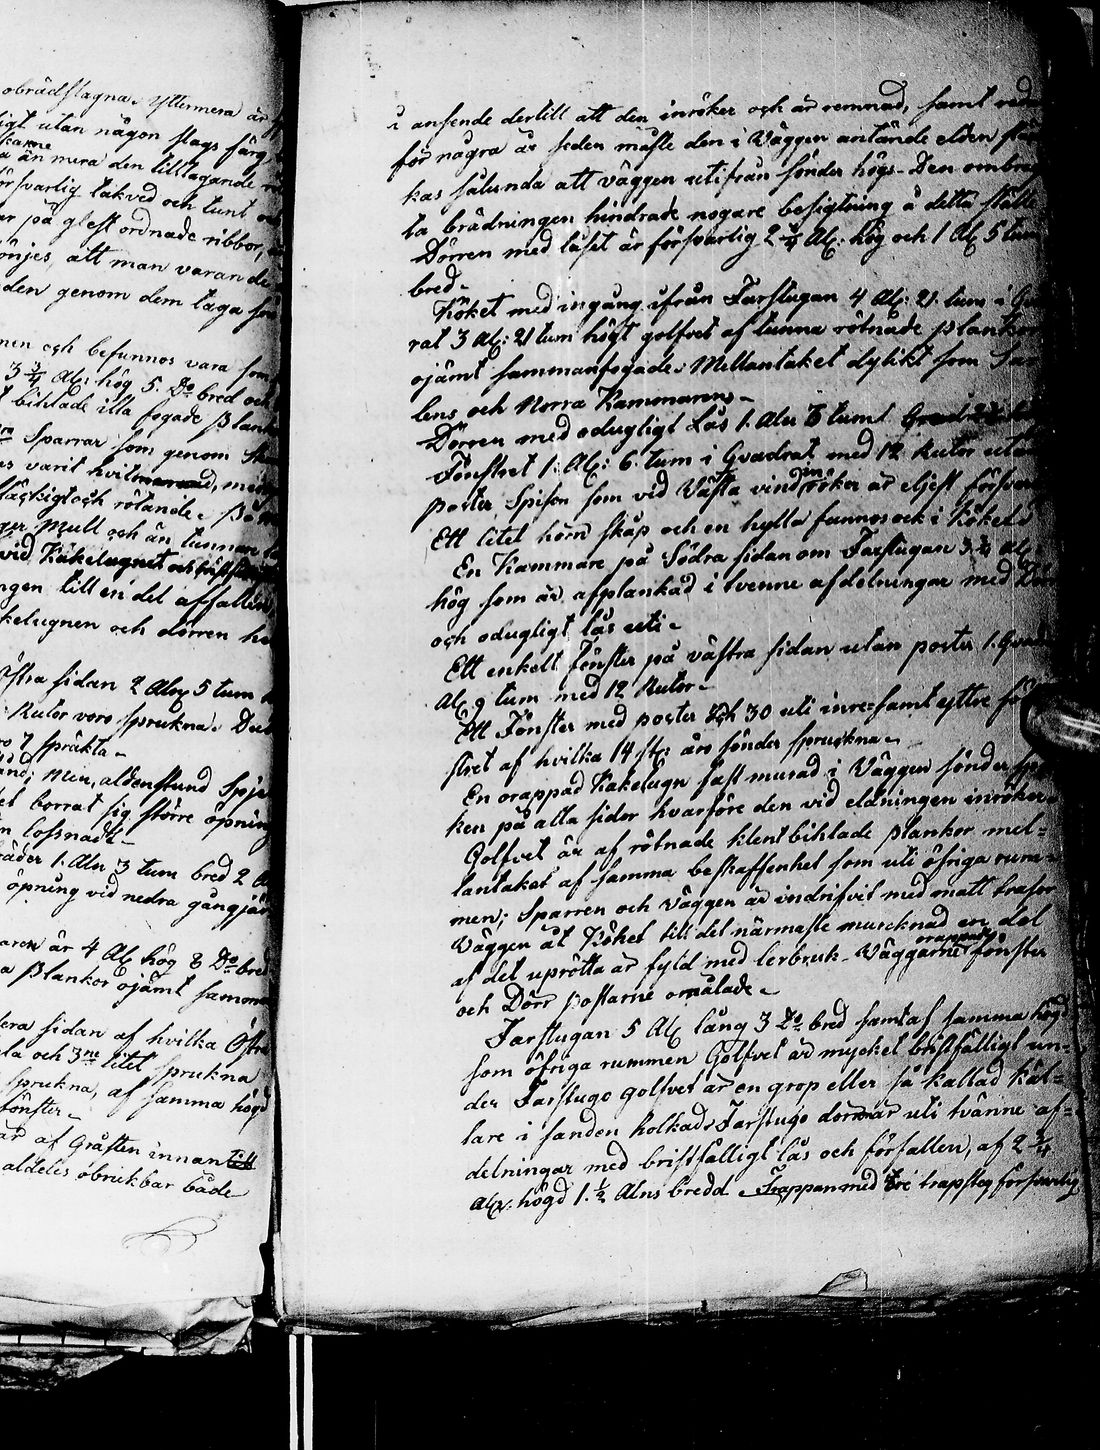 obrädslagna. Yttermera är
ligt utan någon slags färg
än mera den tilltagande
örsvarlig takved och tunt
ar på glest ordnade ribbor,
önjes, att man varande
den genom dem taga
nen och befunnos vara som
3 3/4 Al: hög 5. Do bred och
bihlade illa fogade Plank
Sparrar som genom
es varit hvit
fläckigt och rötande.
Mull och än tunnare
vid Kakelugnet och
ngen till en del affallen
kelugnen och dörren
Östra sidan 2 Alnr 5 tum
Rutor voro sprukna.
7 spräkta.
Men, aldenstund Spje
borrat sig större öpning
lossnade.
1. Aln 3 tum bred 2
öpning vid nedra gångjär
är 4 Al hög 8 Do bred
Plankor ojämt samman
dera sidan af hvilka Östra
och 3ne litet sprukna
sprukna, af samma högd
fönster.
är af Gråsten innan till
aldeles obrukbar både
i anseende dertill att den inröker och är remnad, samt
för några år seden måste den i Väggen antände elden
kas sålunda att väggen utifrån sönder högs. Den
ta brädningen hindrade nogare besigtning å detta ställe
Dörren med låset är försvarlig 2 3/4 Al: hög och 1 Al 5 tum
bred.
Köket med ingång ifrån Farstugan 4 Al: 21. tum i
rat 3 Al: 21 tum högt golfvet af tunna rötnade plankor
ojämt sammanfogade. Mellantaket dylikt som
lens och Norra Kammaren.
Dörren med odugligt Lås 1. Aln 6 tum
Fönstret 1. Al: 6. tum i Qvadrat med 12 Rutor utan
poster, Spisen som vid Västa vind inröker är eljest
Ett litet hörn skåp och en hylla funnos ock i Köket.
En Kammare på Södra sidan om Farstugan 3 3/4 Al:
hög som är afplankad i tvenne afdelningar med
och odugligt lås uti.
Ett enkelt fönster på västra sidan utan poster 1.
Al 9 tum med 12 Rutor.
Ett Fönster med poster och 30 uti inre samt yttre
stret af hvilka 14 st: äro sönder spruckna.
En orappad Kakelugn fast murad i Väggen sönder
ken på alla sidor hvarföre den vid eldningen inröker.
Golfvet är af rötnade klent bihlade plankor mel=
lantaket af samma beskaffenhet som uti öfriga rum=
men; Sparren och Väggen är indrifvit med matt trasor
Väggen åt Köket till det närmaste murcknad en del
af det uprötta är fyld med lerbruk. Väggarne orappade fönster
och Dörr postarne omålade.
Farstugan 5 Al lång 3 Do bred samt af samma högd
som öfriga rummen Golfvet är mycket bristfälligt un=
der Farstugo golfvet är en grop eller så kallad käl=
lare i sanden holkad. Farstugo dörren är uti tvänne af=
delningar med bristfälligt lås och förfallen, af 2 3/4
Alr: högd 1. 1/2 Alns bredd. Trappan med tre trapsteg försvarlig